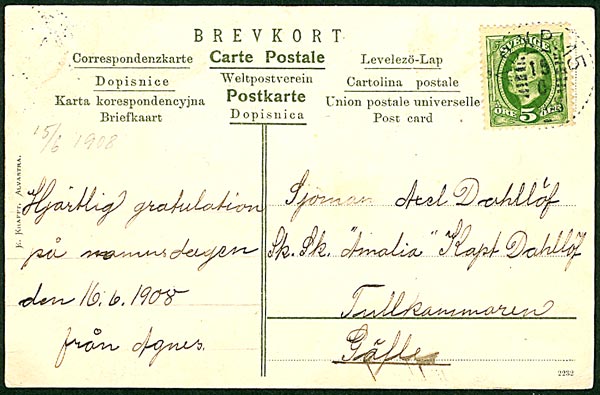 BREVKORT
Correspondenzkarte Carte Postale Levelezö-Lap
Dopisnice Weltpostverein Cartolina postale
Karta korespondencyjna Postkarte Union postale universelle
Briefkaart Dopisnica Post card
SVERIGE
5
ÖRE
15/6 1908
Hjärtlig gratulation
på namnsdagen
den 16.6.1908
från Agnes.
Sjöman Axel Dahllöf
Sk. Sk. "Amalia" Kapt Dahllöf
Tullkammaren
Gäfle
E. Knafft, Alvastra.
2232